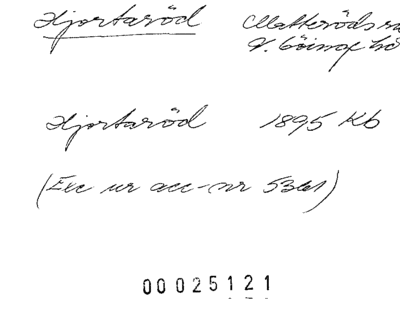 Hjortaröd Matteröds
V. Göinge
Hjortaröd 1895 Kb
(Exc ur acc-nr 5361)
00025121